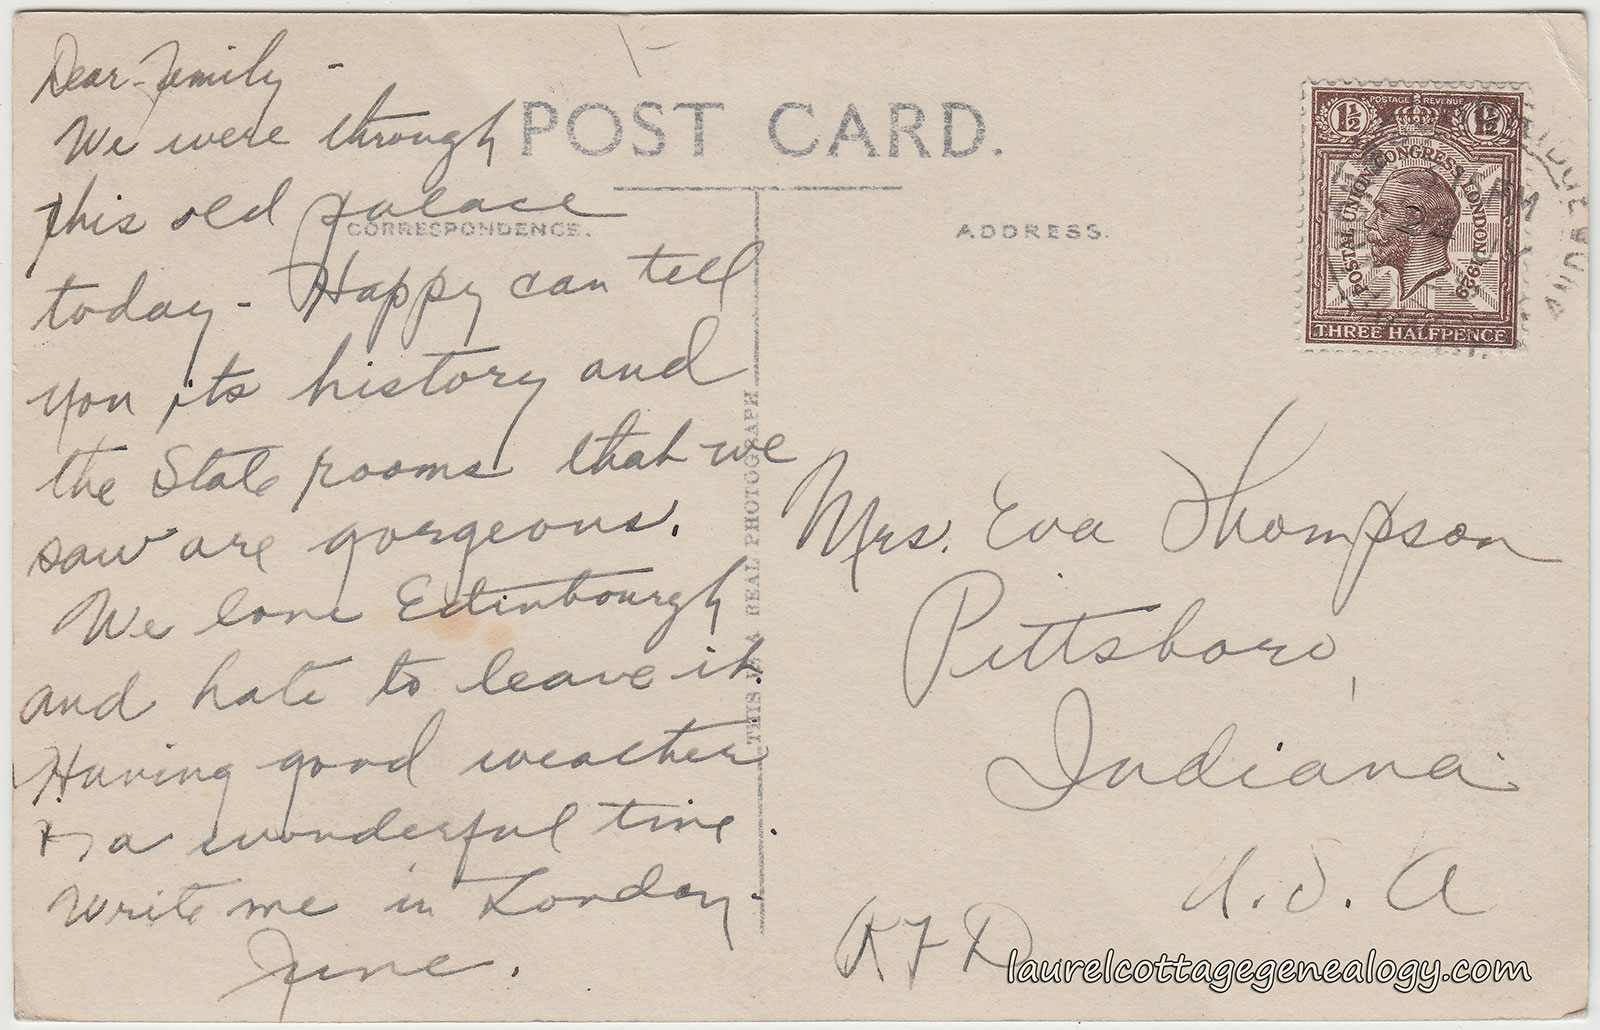 Dear Family -
We were through
this old palace
today - Happy can tell
you its history and
the State rooms that we
saw are gorgeous.
We love Edinbourgh
and hate to leave it.
Having good weather
+ a wonderful time.
Write me in London.
June.
POST CARD.
CORRESPONDENCE.
ADDRESS.
THIS IS A REAL PHOTOGRAPH
POSTAGE REVENUE
1½ 1½
POSTAL UNION CONGRESS LONDON 1929
THREE HALFPENCE
AM
Mrs. Eva Thompson
Pittsboro,
Indiana.
U.S.A
RFD
laurelcottagegenealogy.com